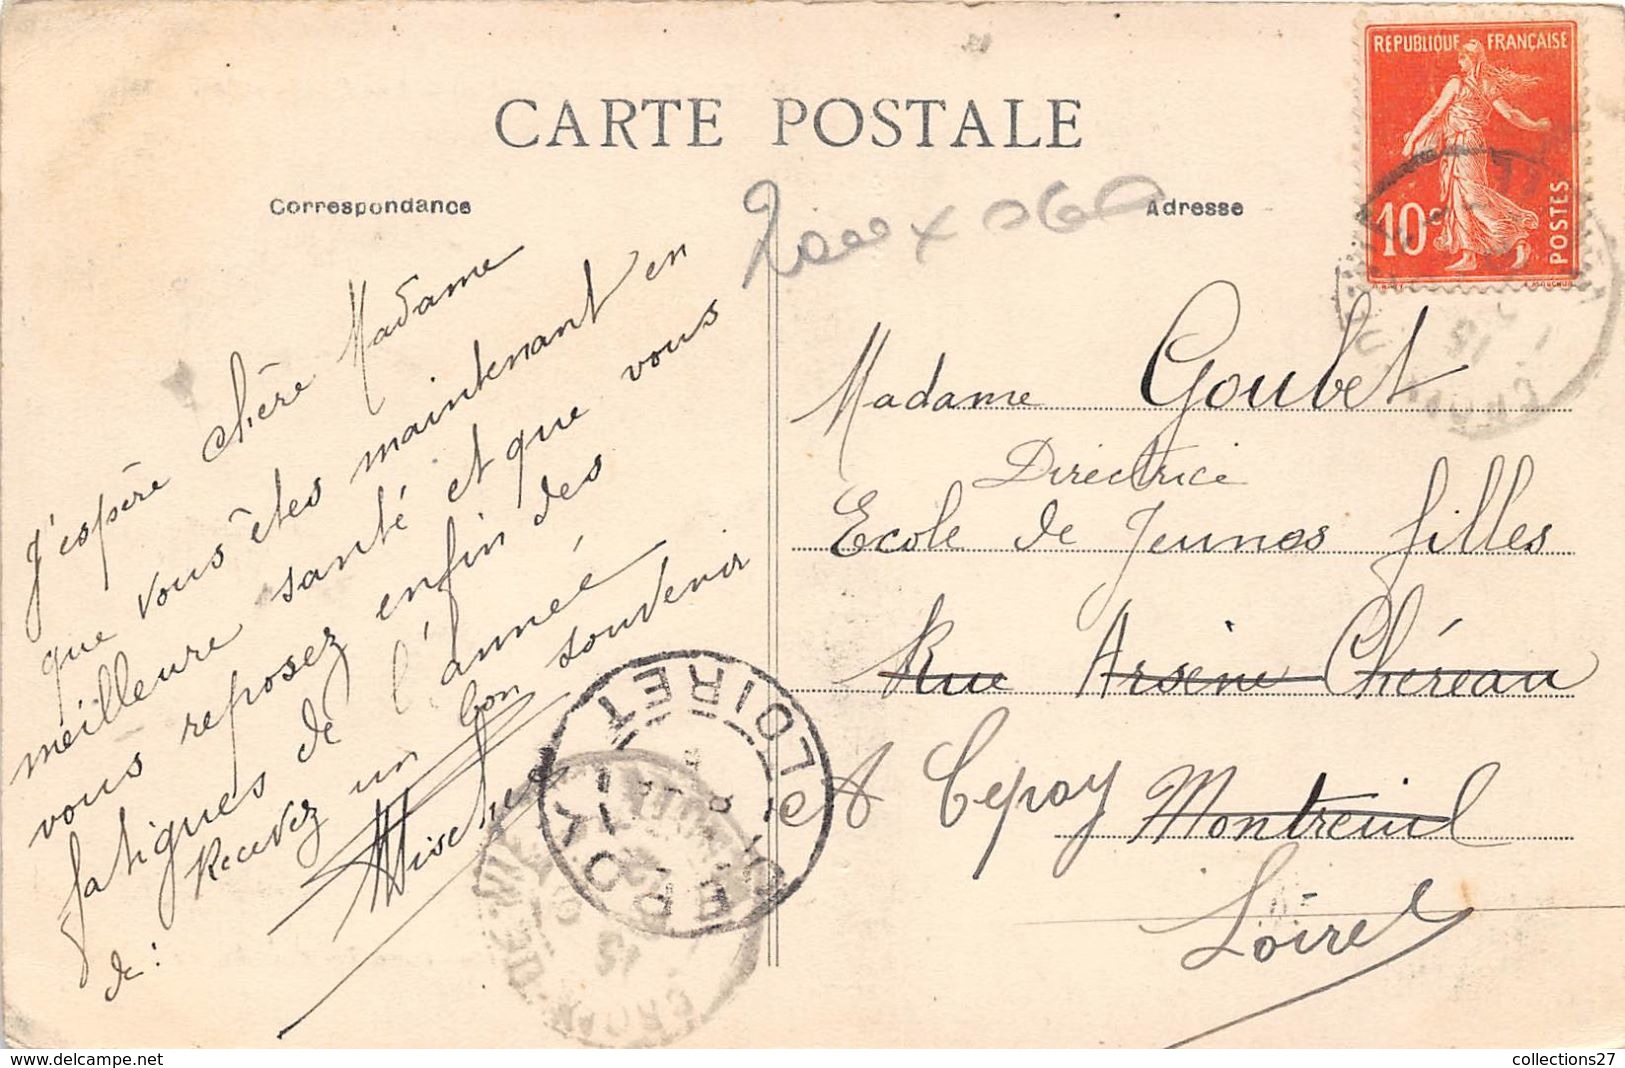 CARTE POSTALE
Correspondance
Adresse
RÉPUBLIQUE FRANÇAISE
10c
POSTES
J'espère chère Madame
que vous êtes maintenant en
meilleure santé et que vous
vous reposez enfin des
fatigues de l'année
Recevez un bon souvenir
de :
Madame Goubet
Directrice
Ecole de Jeunes filles
Rue Arsène Chéreau
A Cepoy Montreuil
Loiret
LOIRET
collections27